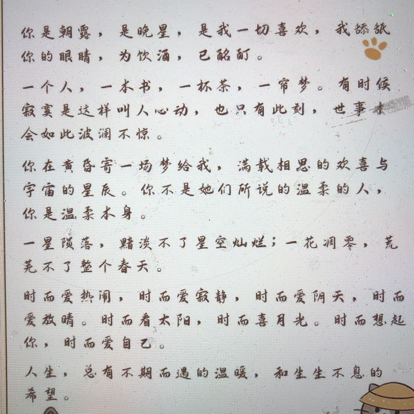 你是朝露，是晚星，是我一切喜欢，我舔舐
你的眼睛，为饮酒，已酩酊。
一个人，一本书，一杯茶，一帘梦。有时候
寂寞是这样叫人心动，也只有此刻，世事才
会如此波澜不惊。
你在黄昏寄一场梦给我，满载相思的欢喜与
宇宙的星辰。你不是她们所说的温柔的人，
你是温柔本身。
一星陨落，黯淡不了星空灿烂；一花凋零，荒
芜不了整个春天。
时而爱热闹，时而爱寂静，时而爱阴天，时而
爱放晴。时而看太阳，时而喜月光。时而想起
你，时而爱自己。
人生，总有不期而遇的温暖，和生生不息的
希望。